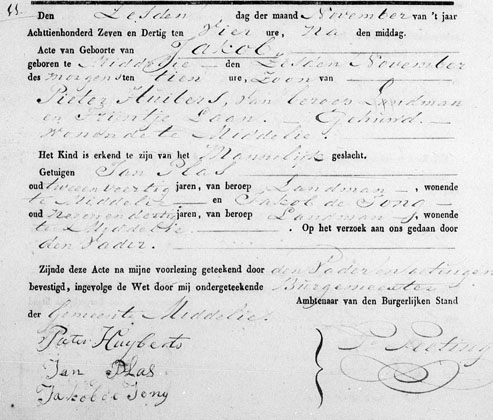 Den Zesden dag der maand November van 't jaar
Achttienhonderd Zeven en Dertig ten Vier ure, Na den middag.
Acte van Geboorte van Jakob,
geboren te Middelie den Zesden November
des morgens ten tien ure, Zoon van
Pieter Huibers, van beroep Landman
en Trijntje Laan. Gehuwd
wonende te Middelie.
Het Kind is erkend te zijn van het Mannelijk geslacht.
Getuigen Jan Plas
oud twee en veertig jaren, van beroep Landman, wonende
te Middelie en Jakob de Jong
oud Negen en dertig jaren, van beroep Landman, wonende
te Middelie. Op het verzoek aan ons gedaan door
den Vader.
Zijnde deze Acte na mijne voorlezing geteekend door den Vader en getuigen
bevestigd, ingevolge de Wet door mij ondergeteekende Burgemeester
Ambtenaar van den Burgerlijken Stand
der Gemeente Middelie.
Pieter Huyberts
Jan Plas
Jakob de Jong